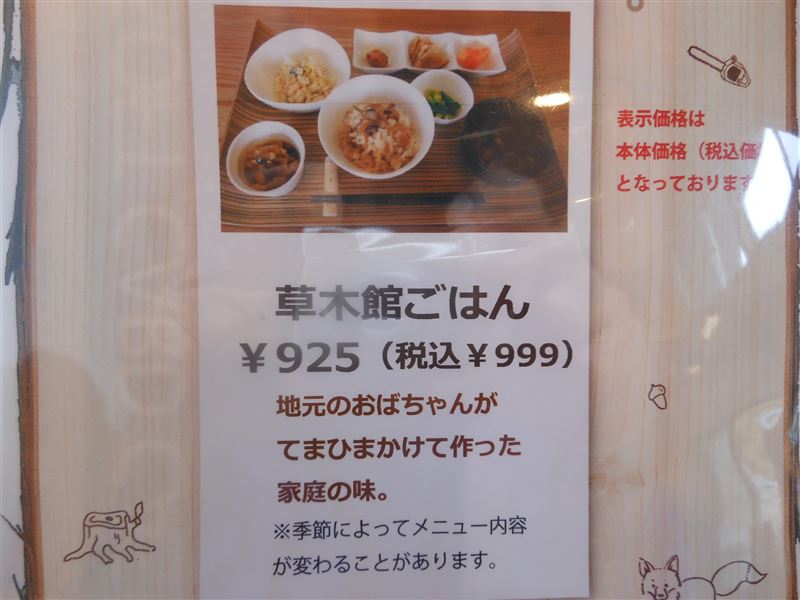 表示価格は
本体価格（税込価
となっております
草木館ごはん
￥925（税込￥999）
地元のおばちゃんが
てまひまかけて作った
家庭の味。
※季節によってメニュー内容
が変わることがあります。